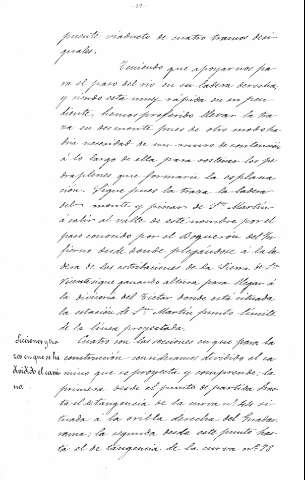 puente viaducto de cuatro tramos desi-
guales.
Teniendo que apoyarnos pa-
ra el paso del rio en su ladera derecha,
y siendo esta muy rapida en su pen-
diente, hemos preferido llevar la tra-
za en desmonte pues de otro modo ha-
bria necesidad de un muro de contención
á lo largo de ella para sostener los pe-
draplenes que formaria la esplana-
ción. Sigue pues la traza la ladera
del monte y pinar de Sn. Martin
á salir al valle de este nombre por el
paso conocido por el Boquerón del In-
fierno desde donde plegándose á la la-
dera de las estribaciones de la Sierra de Sn.
Vicente sigue ganando altura para llegar á
la divisoria del Tietar donde está situada
la estación de Sn. Martin punto límite
de la linea proyectada.
Secciones y tro-
zos en que se ha
dividido el cami-
no.
Cuatro son las secciones en que para la
construcción consideramos dividido el ca-
mino que se proyecta y comprende; la
primera desde el punto de partida has-
ta el de tangencia de la curva nº 44 si-
tuada á la orilla derecha del Guadar-
rama; la segunda desde este punto has-
ta el de tangencia de la curva nº 78